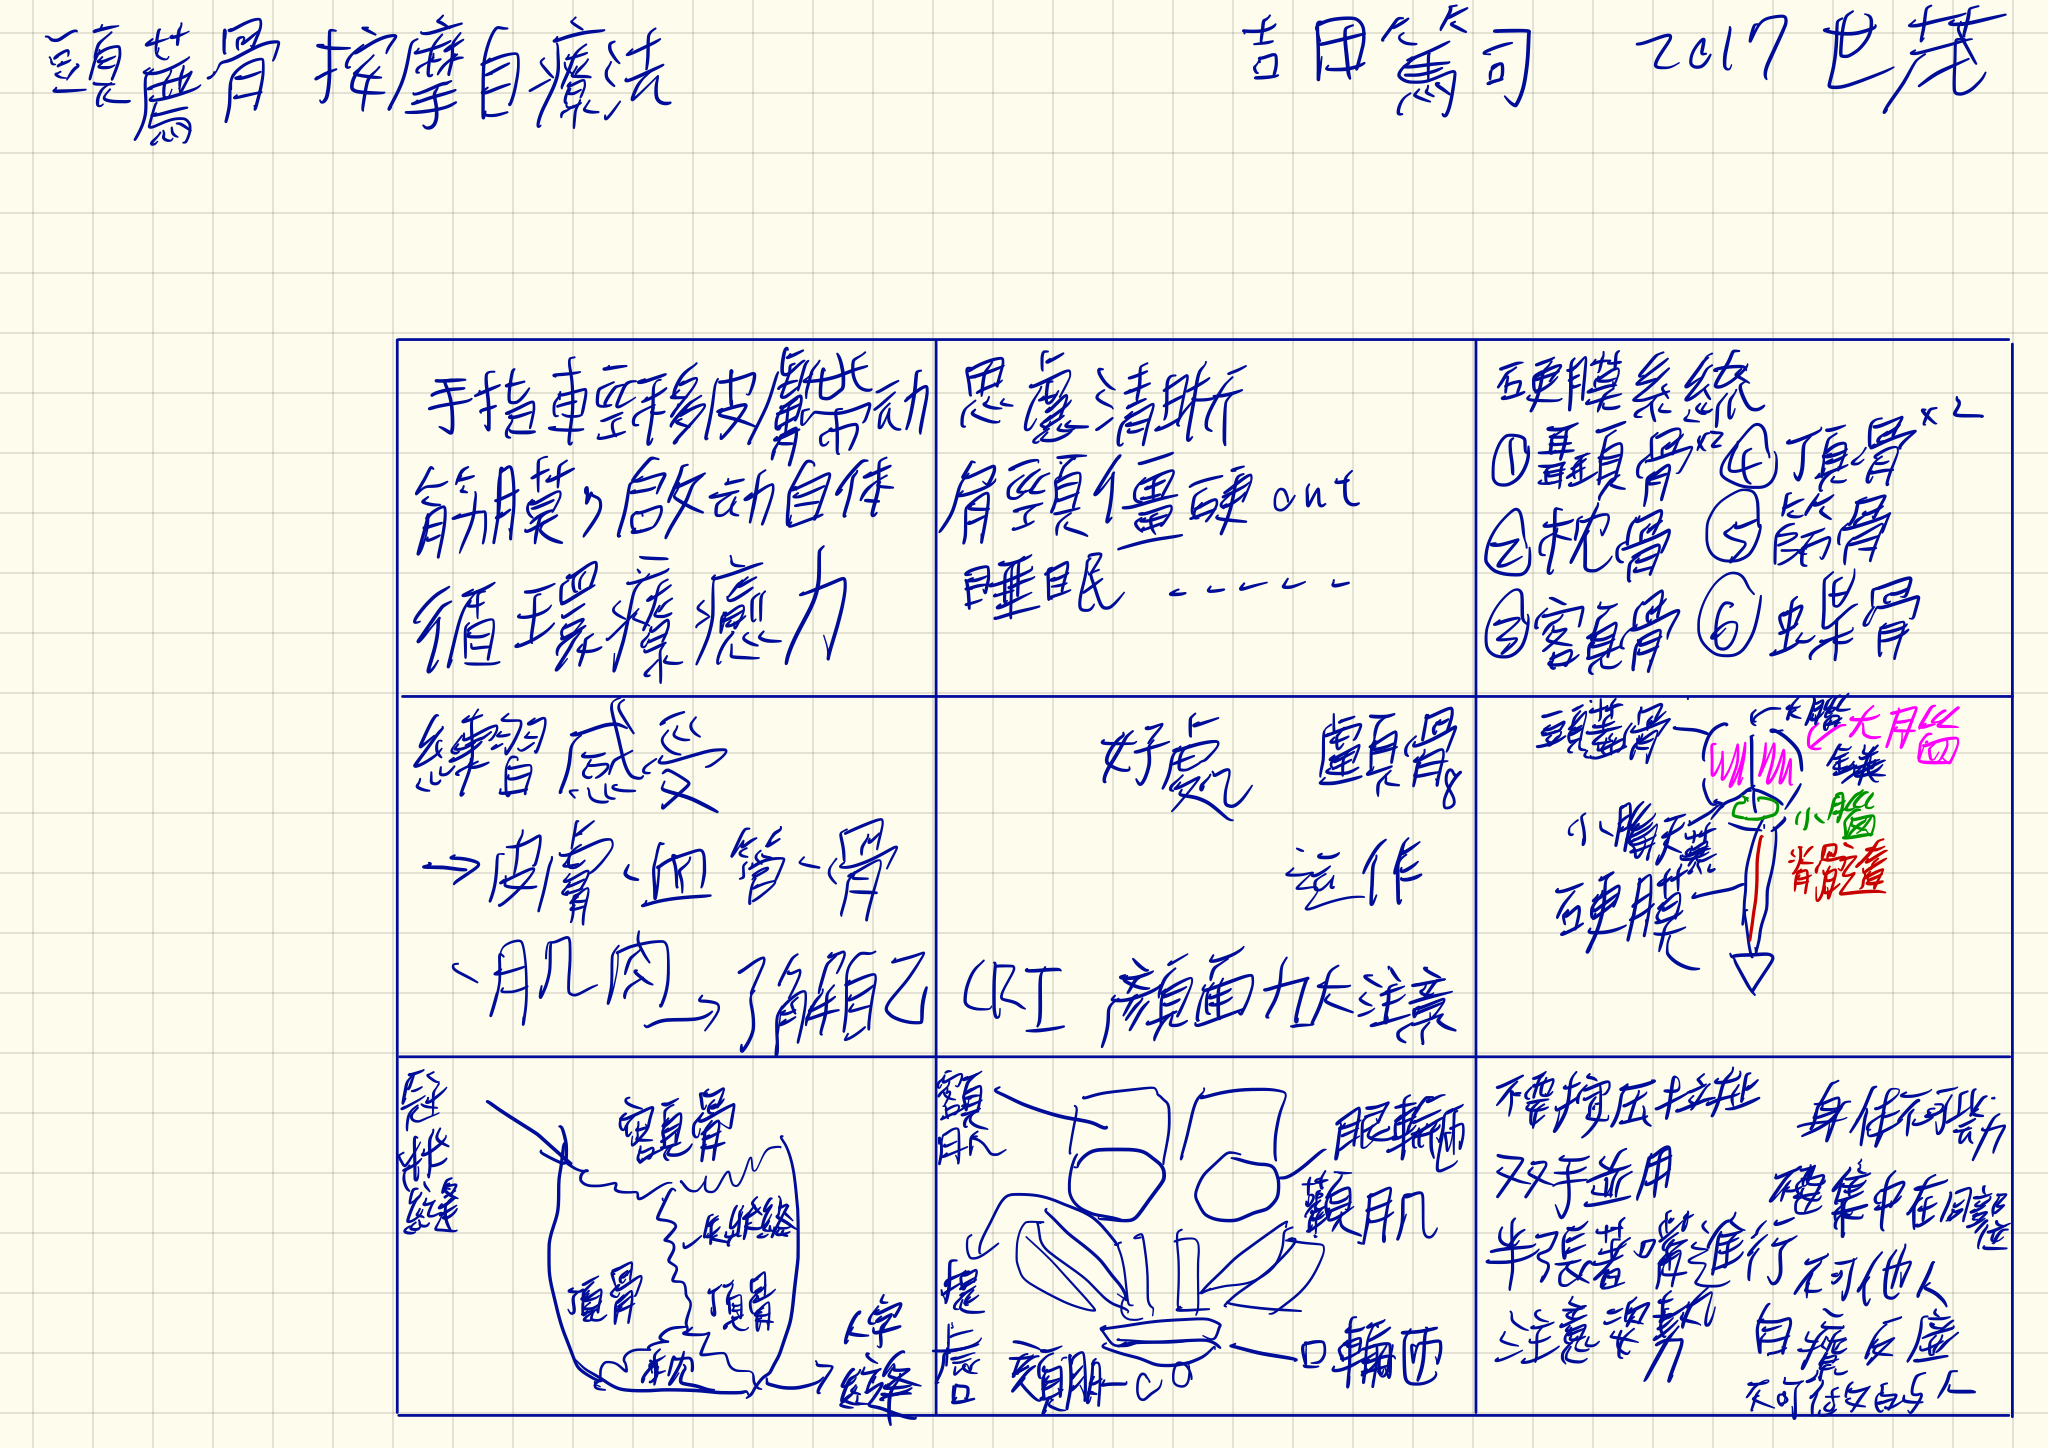 頭薦骨按摩自療法
吉田篤司 2017 世茂
手指車輕移皮膚帶动
筋膜,啟动自体
循環療癒力
思慮清晰
肩頸僵硬 out
睡眠 ------
硬膜系統
①顳頭骨x2 ④頂骨x2
②枕骨 ⑤篩骨
③額骨 ⑥蝶骨
練習感受
→皮膚、血管、骨
、肌肉→了解自己
好處 顱骨8
运作
CRI 顏面九大注意
頭蓋骨
大腦
大腦鐮
小腦天幕
小腦
硬膜
脊髓
冠狀縫
額骨
矢狀縫
頂骨 頂骨
枕
人字縫
額肌
眼輪匝
顴肌
提唇
頰肌
口輪匝
不要按压拉扯
双手並用
半張著嘴進行
注意姿勢
身体不可動
集中在
不可他人
自療反應